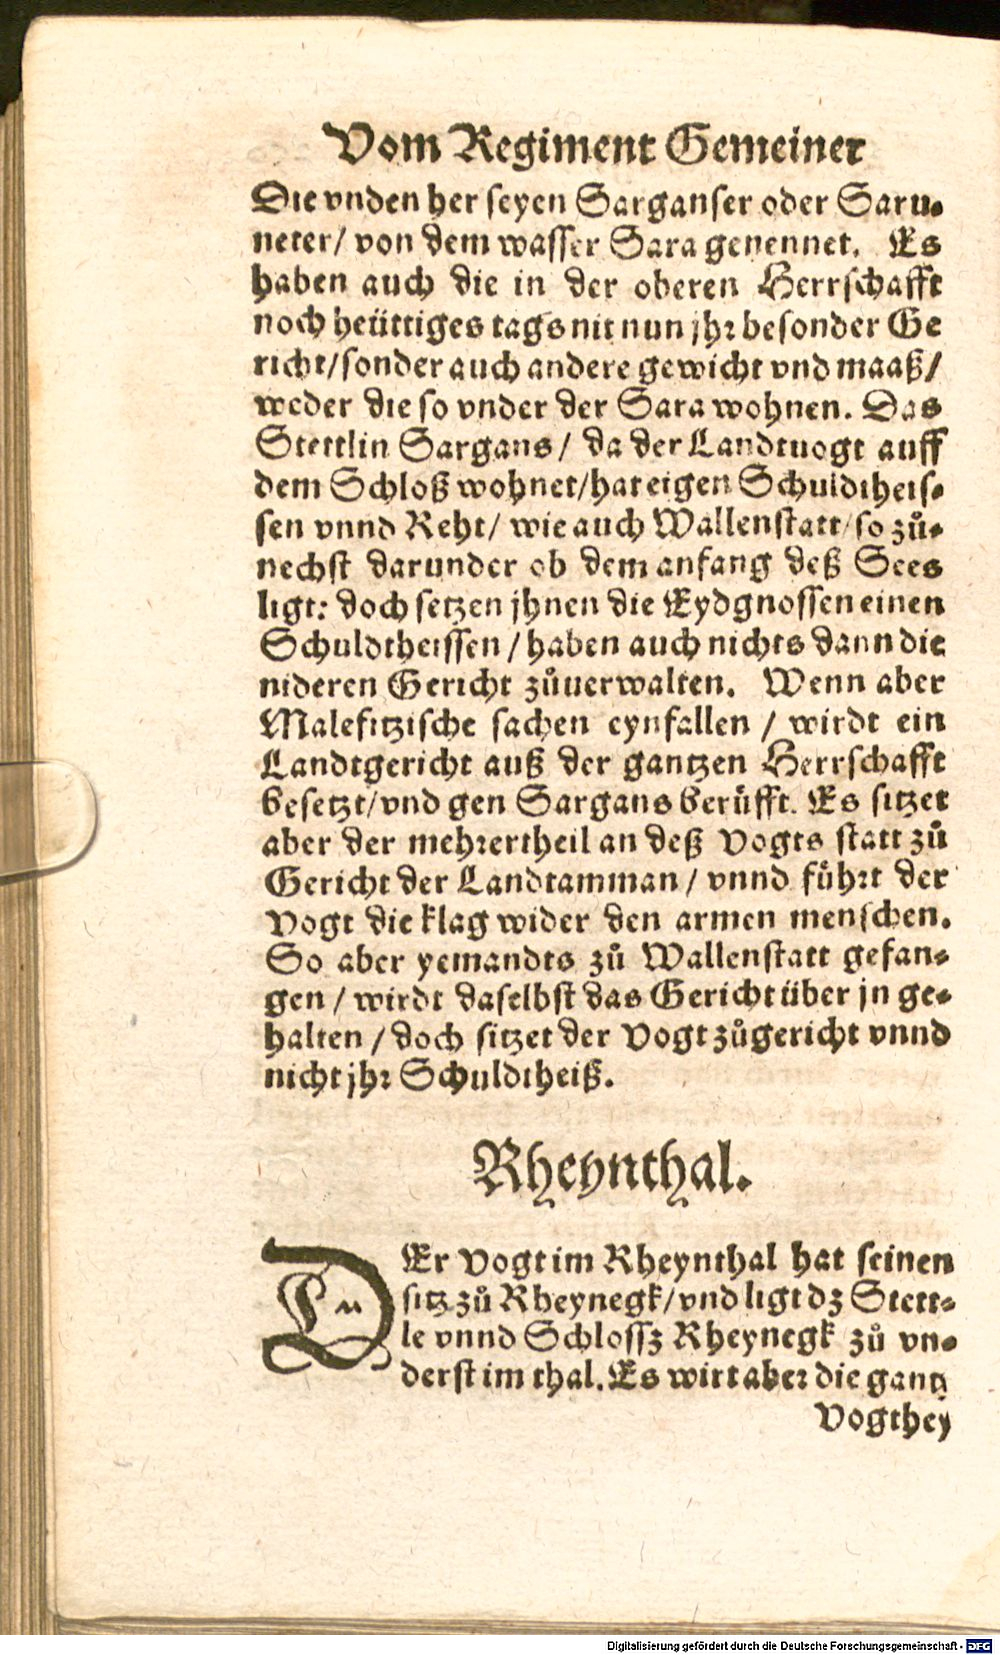 Vom Regiment Gemeiner
Die vnden her seyen Sarganser oder Saru⸗
neter/ von dem wasser Sara genennet. Es
haben auch die in der oberen Herrschafft
noch heüttiges tags nit nun jhr besonder Ge
richt/ sonder auch andere gewicht vnd maaß/
weder die so vnder der Sara wohnen. Das
Stettlin Sargans/ da der Landtuogt auff
dem Schloß wohnet/ hat eigen Schuldtheis⸗
sen vnnd Reht/ wie auch Wallenstatt/ so zů⸗
nechst darunder ob dem anfang deß Sees
ligt: doch setzen jhnen die Eydgnossen einen
Schuldtheissen/ haben auch nichts dann die
nideren Gericht zůuerwalten. Wenn aber
Malefitzische sachen eynfallen/ wirdt ein
Landtgericht auß der gantzen Herrschafft
besetzt/ vnd gen Sargans berüfft. Es sitzet
aber der mehrertheil an deß Vogts statt zů
Gericht der Landtamman/ vnnd führt der
Vogt die klag wider den armen menschen.
So aber yemandts zů Wallenstatt gefan⸗
gen/ wirdt daselbst das Gericht über jn ge⸗
halten/ doch sitzet der Vogt zůgericht vnnd
nicht jhr Schuldtheiß.
Rheynthal.
DEr Vogt im Rheynthal hat seinen
sitz zů Rheynegk/ vnd ligt dz Stett⸗
le vnnd Schlossz Rheynegk zů vn⸗
derst im thal. Es wirt aber die gantz
Vogthey
Digitalisierung gefördert durch die Deutsche Forschungsgemeinschaft - DFG